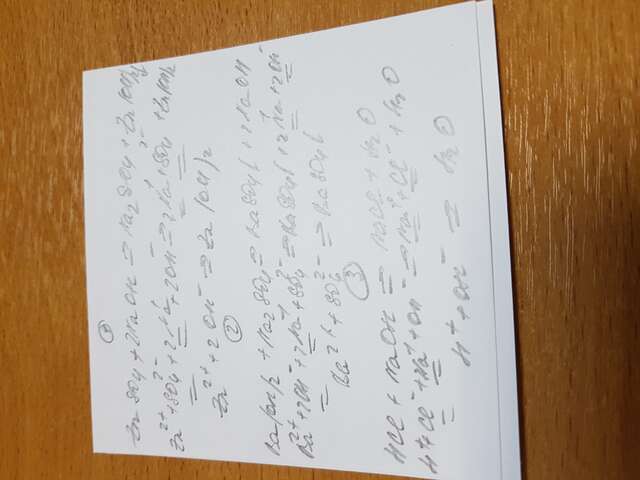 1
ZnSO4 + 2NaOH = Na2SO4 + Zn(OH)2↓
Zn²⁺ + SO4²⁻ + 2Na⁺ + 2OH⁻ = 2Na⁺ + SO4²⁻ + Zn(OH)2
Zn²⁺ + 2OH⁻ = Zn(OH)2
2
Ba(OH)2 + Na2SO4 = BaSO4↓ + 2NaOH
Ba²⁺ + 2OH⁻ + 2Na⁺ + SO4²⁻ = BaSO4↓ + 2Na⁺ + 2OH⁻
Ba²⁺ + SO4²⁻ = BaSO4↓
3
HCl + NaOH = NaCl + H2O
H⁺ + Cl⁻ + Na⁺ + OH⁻ = Na⁺ + Cl⁻ + H2O
H⁺ + OH⁻ = H2O